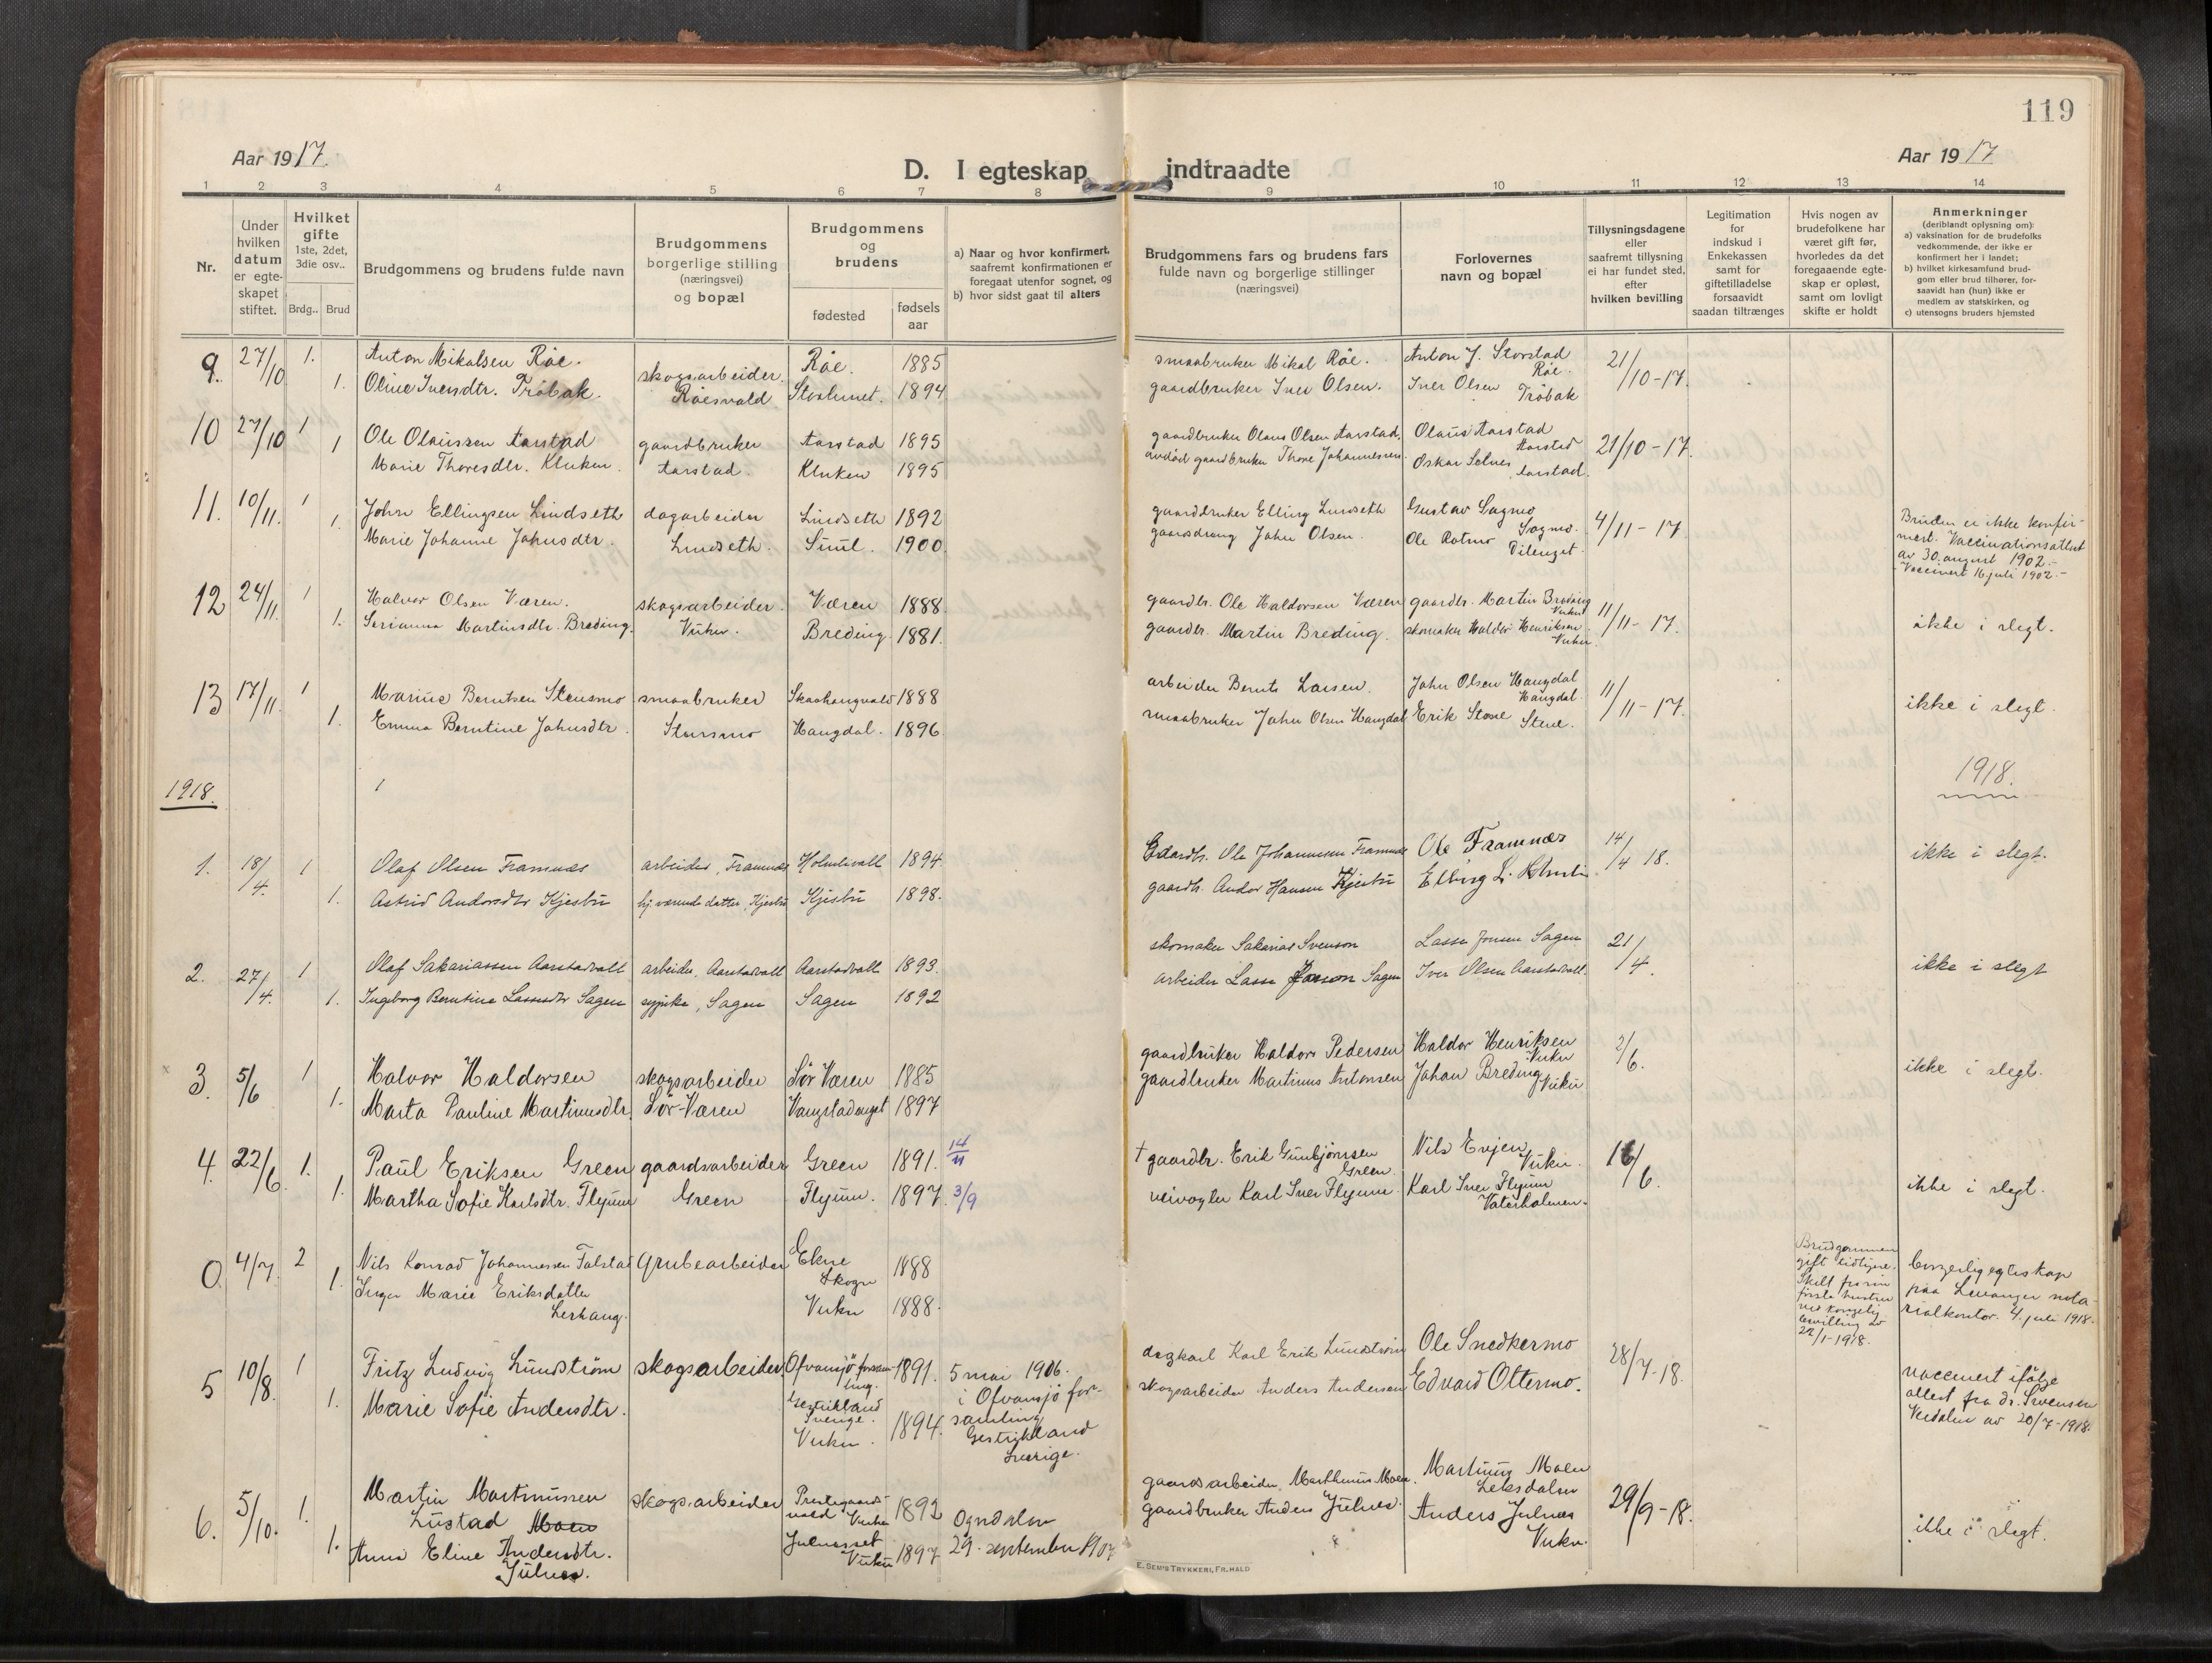 119
Aar 1917.
Aar 1917
D. I egteskap indtraadte
1 2 3 4 5 6 7 8 9 10 11 12 13 14
Nr.
Under
hvilken
datum
er egte-
skapet
stiftet.
Hvilket
gifte
1ste, 2det,
3die osv..
Brdg.. Brud
Brudgommens og brudens fulde navn
Brudgommens
borgerlige stilling
(næringsvei)
og bopæl
Brudgommens
og
brudens
fødested
fødsels
aar
a) Naar og hvor konfirmert,
saafremt konfirmationen er
foregaat utenfor sognet, og
b) hvor sidst gaat til alters
Brudgommens fars og brudens fars
fulde navn og borgerlige stillinger
(næringsvei)
Forlovernes
navn og bopæl
Tillysningsdagene
eller
saafremt tillysning
ei har fundet sted,
efter
hvilken bevilling
Legitimation
for
indskud i
Enkekassen
samt for
giftetilladelse
forsaavidt
saadan tiltrænges
Hvis nogen av
brudefolkene har
været gift før,
hvorledes da det
foregaaende egte-
skap er opløst,
samt om lovligt
skifte er holdt
Anmerkninger
(deriblandt oplysning om):
a) vaksination for de brudefolks
vedkommende, der ikke er
konfirmert her i landet;
b) hvilket kirkesamfund brud-
gom eller brud tilhører, for-
saavidt han (hun) ikke er
medlem av statskirken, og
c) utensogns bruders hjemsted
9. 27/10 1. Anton Mikalsen Røe. skogsarbeider. Røe. 1885 smaabruker Mikal Røe. Anton J. Storstad Røe. 21/10-17.
1. Oline Iversdtr. Trøbak. Røesvald 1894 gaardbruker Iver Olsen. Iver Olsen Trøbak
10 27/10 1 Ole Olaussen Aarstad gaardbruker Aarstad 1895 gaardbruker Olaus Olsen Aarstad. Olaus Aarstad Aarstad 21/10-17.
1 Marie Thoresdtr. Kluken. Aarstad. Kluken 1895 avdød gaardbruker Thore Johannessen. Oskar Selnes Aarstad.
11. 10/11. 1 John Ellingsen Lindseth dagarbeider Lindseth 1892 gaardbruker Elling Lindseth Gustav Sagmo Sagmo. 4/11-17.
1. Marie Johanne Johnsdtr. Lindseth. Suul. 1900. gaardsdreng John Olsen. Ole Rotmo
Bruden er ikke konfir-
mert. Vaccinationsattest
av 30. august 1902.-
Vaccinert 16 juli 1902.-
12 24/11. 1 Halvor Olsen Væren. skogsarbeider. Væren 1888 gaardbr. Ole Haldorsen Væren gaardbr. Martin Breding Vuku 11/11-17. ikke i slegt.
1. Serianna Martinsdtr. Breding. Vuku. Breding. 1881. gaardbr. Martin Breding. skomaker Haldor Henriksen Vuku.
13 17/11. 1 Marius Berntsen Stensmo smaabruker 1888 arbeider Bernt Larsen. John Olsen Haugdal Haugdal. 11/11-17. ikke i slegt.
1. Emma Berntine Johnsdtr. Stensmo Haugdal. 1896. smaabruker John Olsen Haugdal Erik Stene Stene.
1918. 1918.
1. 18/4. 1 Olaf Olsen Framnæs arbeider, Framnæs 1894. Gaardb. Ole Johannesen Framnæs Ole Framnæs 14/4 18. ikke i slegt.
1. Astrid Andorsdtr Kjesbu hj. værende datter, Kjesbu Kjesbu 1898. gaardb. Andor Hansen Kjesbu
2. 27/4. 1 Olaf Sakariassen Aarstadvald arbeider, Aarstadvald Aarstadvald 1893. skomaker Sakarias Svenson Lasse Jonsen Sagen 21/4. ikke i slegt
1. Ingeborg Berntine Lassesdtr Sagen sypike, Sagen Sagen 1892 arbeider Lasse Sagen Iver Olsen Aarstadvald.
3. 5/6 1 Halvor Haldorsen skogsarbeider Sör Væren 1885 gaardbruker Haldor Pedersen Haldor Henriksen Vuku 2/6. ikke i slegt.
1. Marta Pauline Martinusdtr. Sör-Væren Vangstadenget 1897 gaardbruker Martinus Antonsen Johan Breding Vuku
4. 22/6. 1. Paul Eriksen Green gaardsarbeider Green 1891. 14/11 † gaardbr. Erik Gunbjørnsen Green. Nils Evjen Vuku. 16/6. ikke i slegt.
1. Martha Sofie Karlsdtr. Flyum Green Flyum. 1897. 3/9 veivogter Karl Iver Flyum Karl Iver Flyum
0. 4/7 2 Nils Konrad Johannessen Falstad Grubearbeider Ekne Skogn 1888
1. Inger Marie Eriksdatter Lerhaug. Vuku 1888.
Brudgommen
gift tidligere.
Skilt fra sin
første hustru
ved kongelig
bevilling av
22/1-1918.
borgerlig egteskap
paa Levanger nota-
rialkontor. 4. juli 1918.
5 10/8. 1 Fritz Ludvig Lundström skogsarbeider. Ofvansjö forsam-
ling.
Gestrikland
Sverige. 1891. 5 mai 1906.
i Ofvansjö for-
samling
Gestrikland
Sverige. Karl Erik Lundström Ole Snedkermo 28/7-18.
1. Marie Sofie Andersdtr. Vuku. 1894. skogsarbeider Anders Andersen Edvard Ottermo.
vaccinert ifølge
attest fra dr. Svensen
Verdalen av 20/7-1918.
6. 5/10. 1. Martin Martinussen
Lustad Moen skogsarbeider Prestegaards-
vald Vuku 1892 Ogndalen gaardsarbeider Marthinus Moen. Martinus Moen
Leksdalen 29/9-18. ikke i slegt.
1. Anna Eline Andersdtr.
Julnes. Julnesset
Vuku 1897 29. september 1907 gaardbruker Anders Julnes. Anders Julnes
Vuku.
E. SEM'S TRYKKERI, FR.HALD